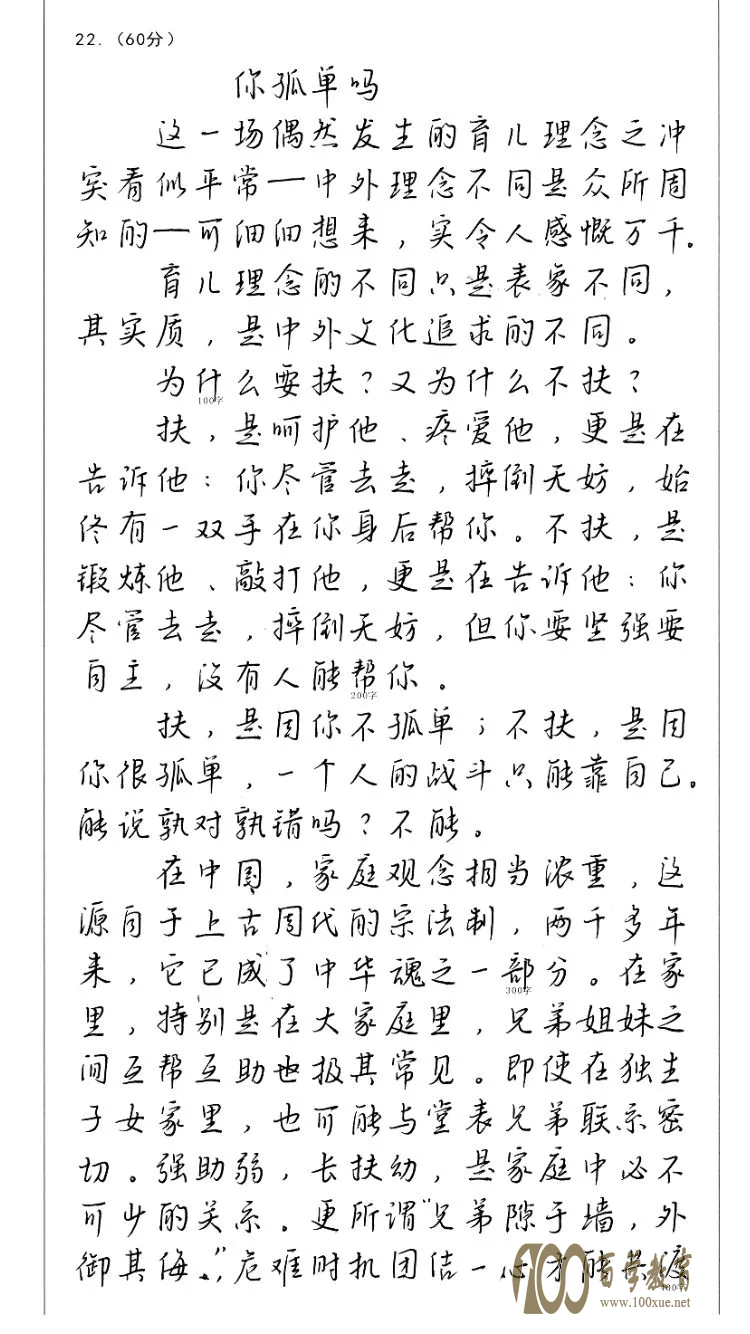 22.（60分）
你孤单吗
这一场偶然发生的育儿理念之冲
突看似平常——中外理念不同是众所周
知的——可细细想来，实令人感慨万千。
育儿理念的不同只是表象不同，
其实质，是中外文化追求的不同。
为什么要扶？又为什么不扶？
100字
扶，是呵护他、疼爱他，更是在
告诉他：你尽管去走，摔倒无妨，始
终有一双手在你身后帮你。不扶，是
锻炼他、敲打他，更是在告诉他：你
尽管去走，摔倒无妨，但你要坚强要
自主，没有人能帮你。
200字
扶，是因你不孤单；不扶，是因
你很孤单，一个人的战斗只能靠自己。
能说孰对孰错吗？不能。
在中国，家庭观念相当浓重，这
源自于上古周代的宗法制，两千多年
来，它已成了中华魂之一部分。在家
300字
里，特别是在大家庭里，兄弟姐妹之
间互帮互助也极其常见。即使在独生
子女家里，也可能与堂表兄弟联系密
切。强助弱，长扶幼，是家庭中必不
可少的关系。更所谓“兄弟隙于墙，外
御其侮”，危难时机团结一心才能共渡
400字
100百学教育
www.100xue.net